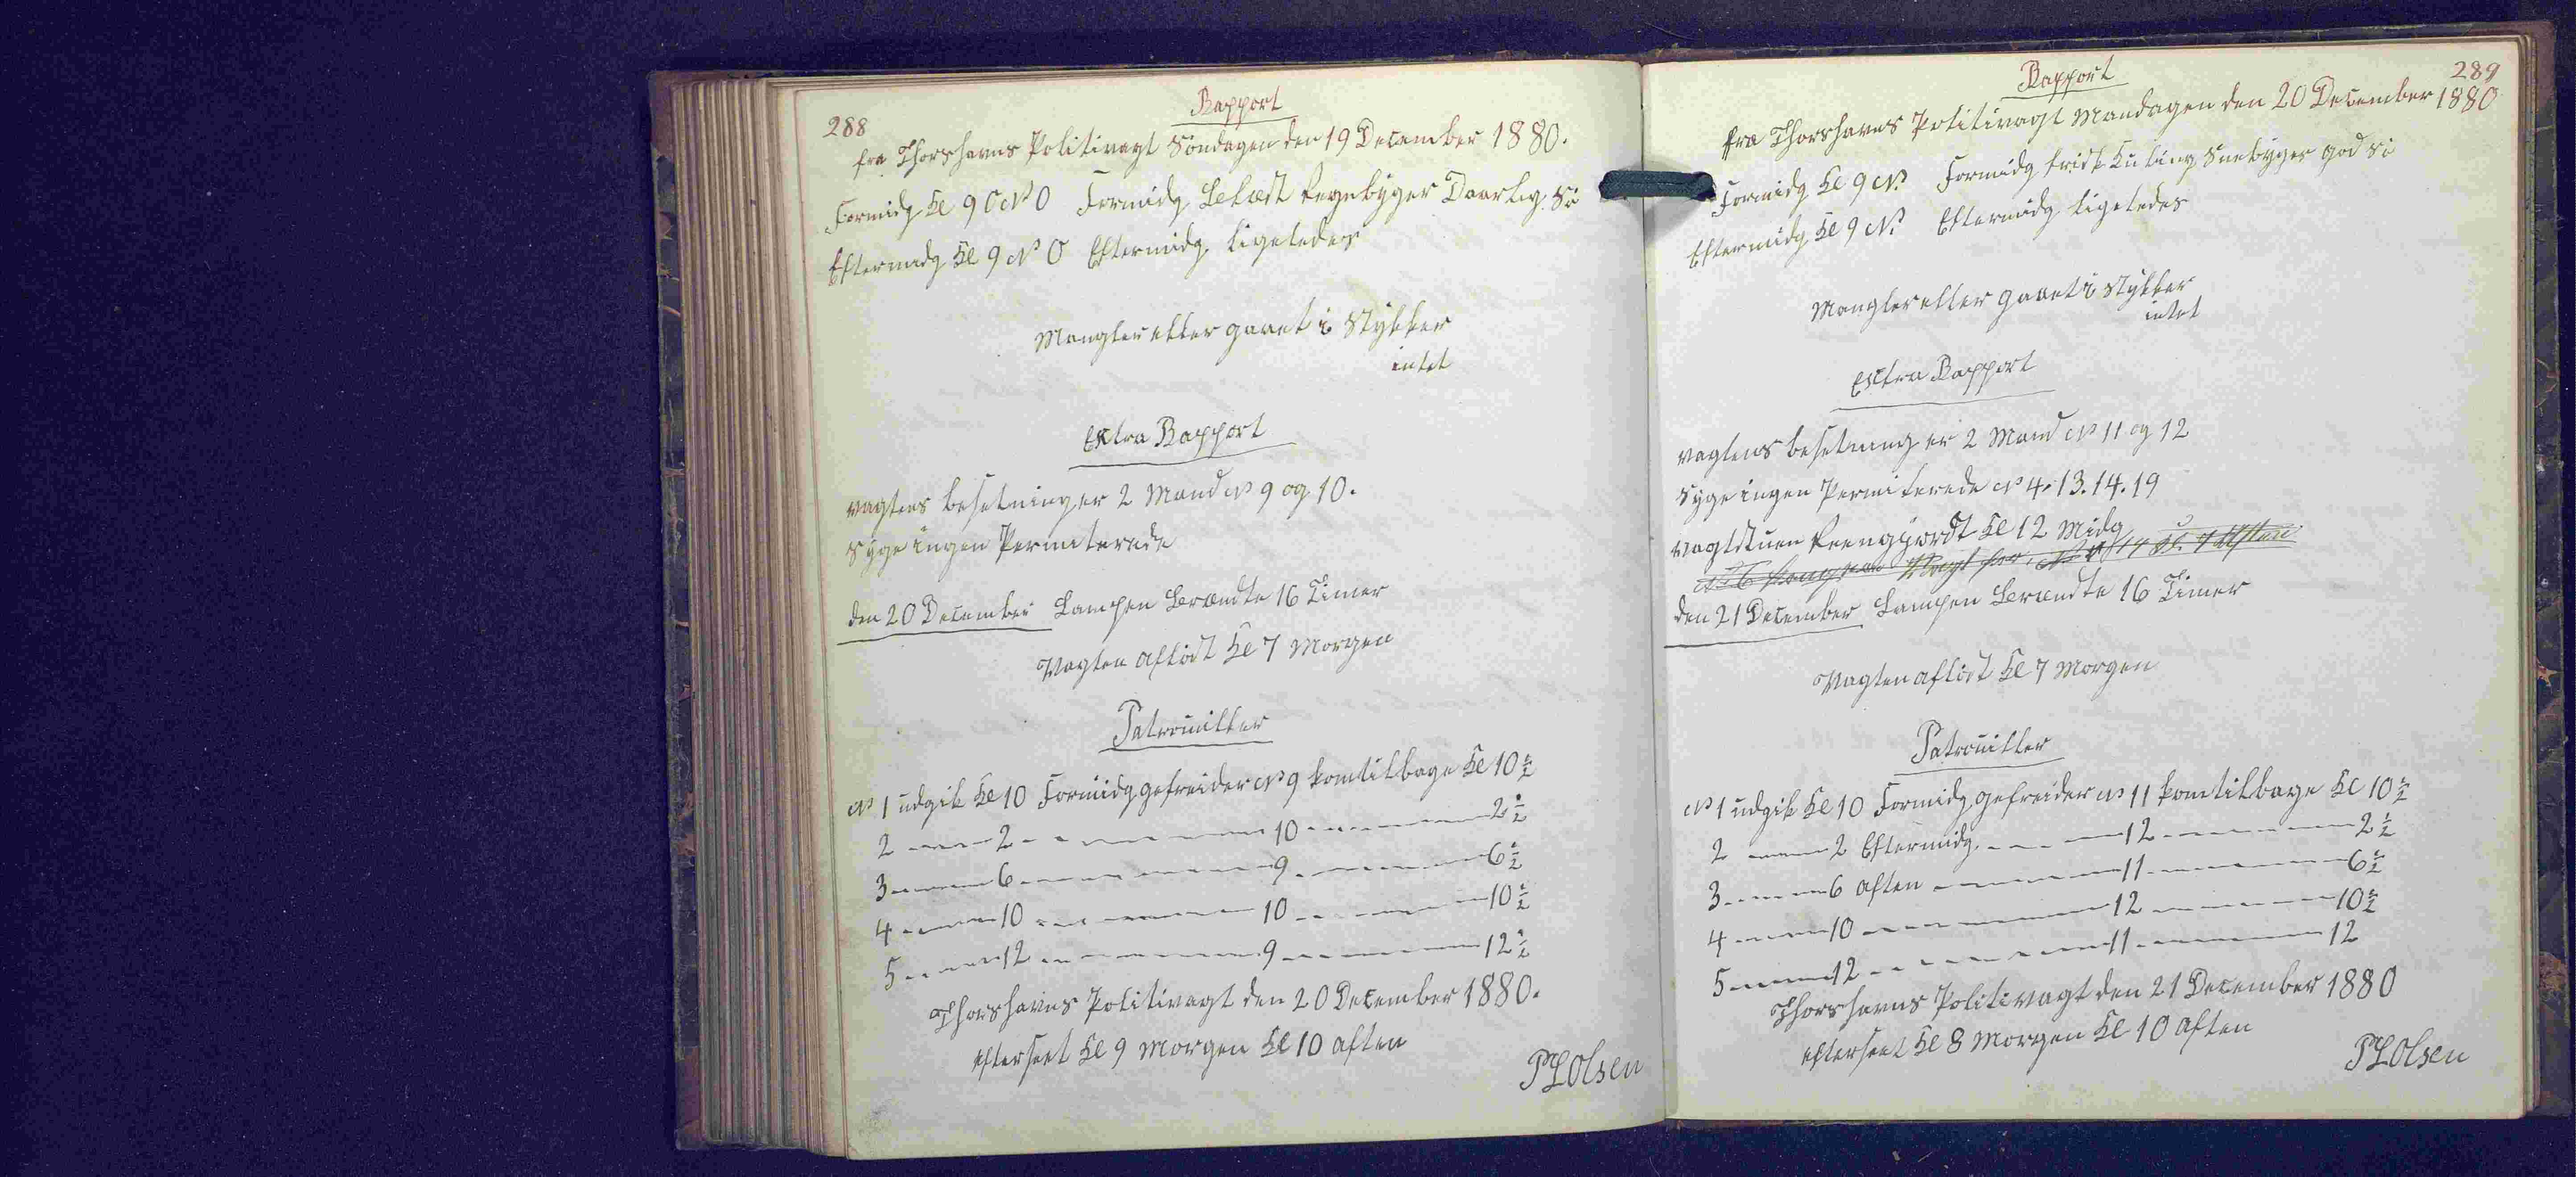 288
Rapport
fra Thorshavns Politivagt Söndagen den 19 December 1880.
Formidg Kl 9 O N O Formidg Lekuest Regnbyger Daarlig Si
Eftermidg Kl 9 N O Eftermidg ligeledes
Mangler eller gaaet i Stykker
intet
Extra Rapport
vagtens besetning er 2 Mand No 9 og 10.
Syge ingen Permiterede
den 20 December Lampen Brændte 16 Timer
Vagten aflöst Kl 7 Morgen
Patrouiller
No 1 udgik Kl 10 Formidg gefreider No 9 kom tilbage Kl 10 1/2
2 - 2 - 10 - 2 1/2
3 - 6 - 9 - 6 1/2
4 - 10 - 10 - 10 1/2
5 - 12 - 9 - 12 1/2
Thorshavns Politivagt den 20 December 1880.
efterseet Kl 9 Morgen Kl 10 aften
PLOlsen
289
Rapport
fra Thorshavns Politivagt Mandagen den 20 December 1880
Formidg Kl 9 N. Formidg frisk Kuling Snebyger god Si
Eftermidg Kl 9 N. Eftermidg ligeledes
Mangler eller gaaet i Stykker
intet
Extra Rapport
vagtens besetning er 2 Mand No 11 og 12
Syge ingen Permiterede No 4. 13. 14. 19
vagtstuen Reengjordt Kl 12 Midg
den 21 December Lampen Brændte 16 Timer
Vagten aflöst Kl 7 Morgen
Patrouiller
No 1 udgik Kl 10 Formidg gefreider No 11 kom tilbage Kl 10 1/2
2 - 2 Eftermidg - 12 - 2 1/2
3 - 6 aften - 11 - 6 1/2
4 - 10 - 12 - 10 1/2
5 - 12 - 11 - 12
Thorshavns Politivagt den 21 December 1880
efterseet Kl 8 Morgen Kl 10 Aften
PLOlsen